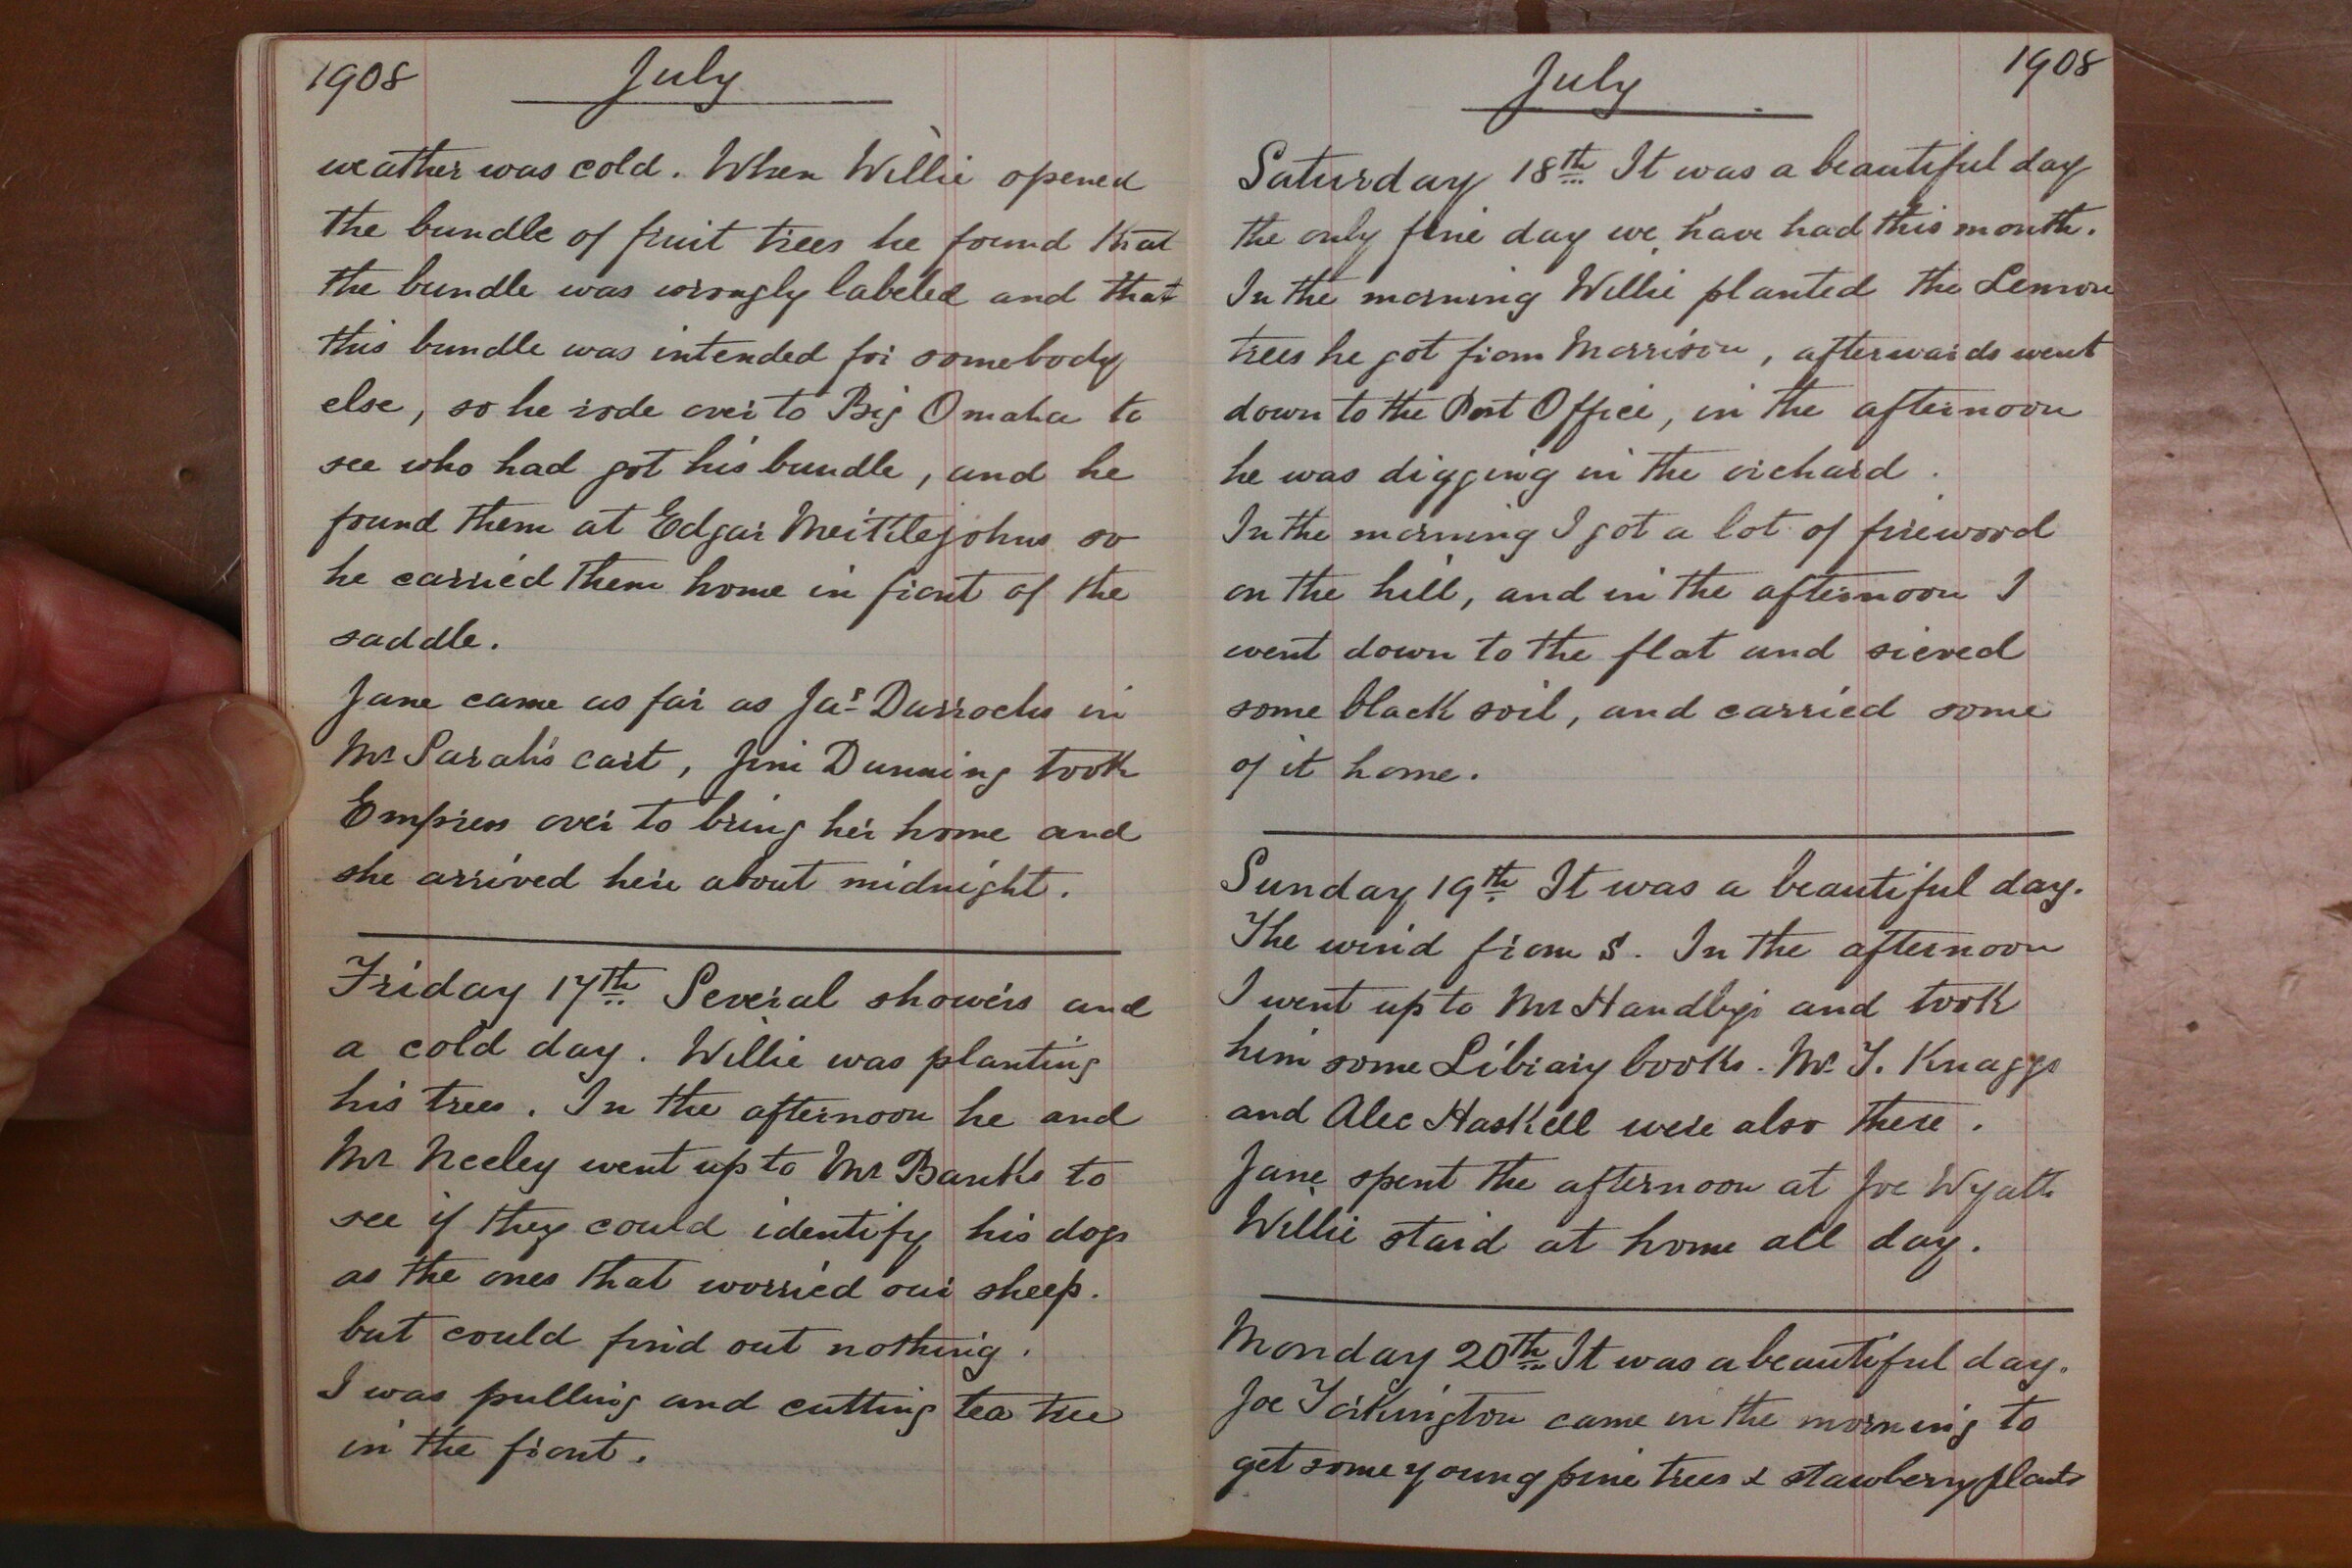 1908 July
weather was cold. When Willie opened
the bundle of fruit trees he found that
the bundle was wrongly labeled and that
this bundle was intended for somebody
else, so he rode over to Big Omaha to
see who had got his bundle, and he
found them at Edgar Meiklejohns so
he carried them home in front of the
saddle.
Jane came as far as Jas Darrochs in
Mr Sarah's cart, Jim Dunning took
Empress over to bring her home and
she arrived here about midnight.
Friday 17th Several showers and
a cold day. Willie was planting
his trees. In the afternoon he and
Mr Neeley went up to Mr Banks to
see if they could identify his dogs
as the ones that worried our sheep.
but could find out nothing.
I was pulling and cutting tea tree
in the front.
July 1908
Saturday 18th It was a beautiful day
the only fine day we have had this month.
In the morning Willie planted the Lemon
trees he got from Morrison, afterwards went
down to the Post Office, in the afternoon
he was digging in the orchard.
In the morning I got a lot of firewood
on the hill, and in the afternoon I
went down to the flat and sieved
some black soil, and carried some
of it home.
Sunday 19th It was a beautiful day.
The wind from S. In the afternoon
I went up to Mr and took
him some Library books. Mr T. Knaggs
and Alec Haskell were also there.
Jane spent the afternoon at Joe Wyatts
Willie staid at home all day.
Monday 20th It was a beautiful day.
Joe Torkington came in the morning to
get some young pine trees & stawberry plants